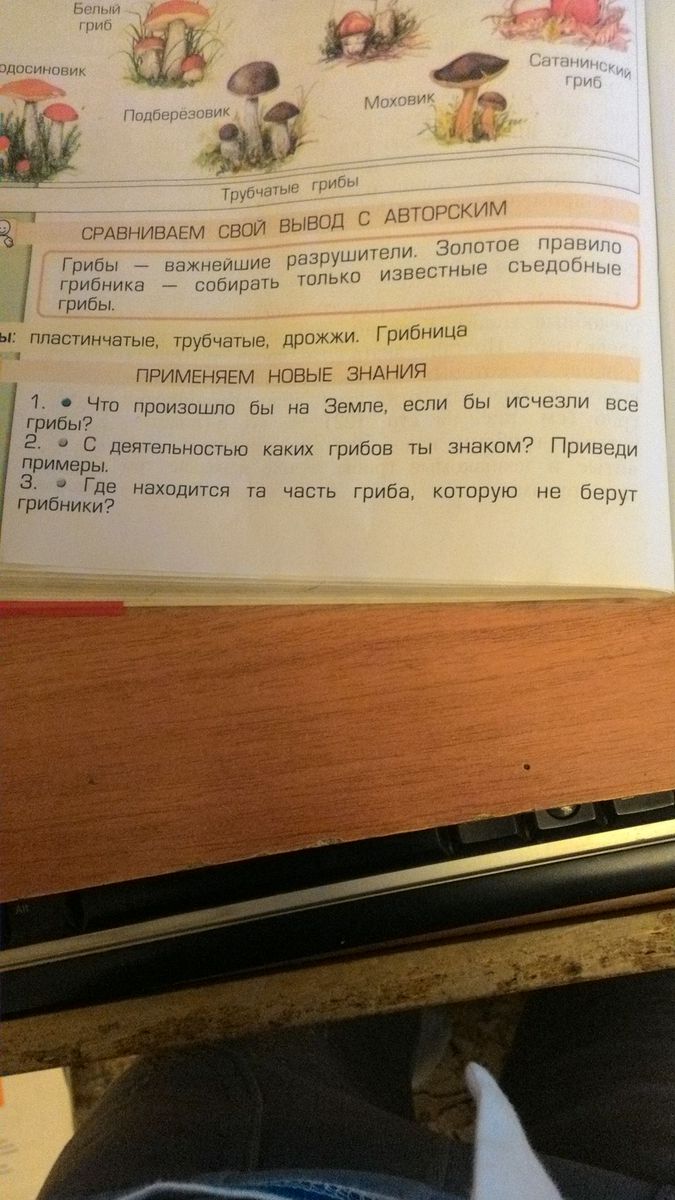 Белый
гриб
одосиновик
Подберёзовик
Моховик
Сатанинский
гриб
Трубчатые грибы
СРАВНИВАЕМ СВОЙ ВЫВОД С АВТОРСКИМ
Грибы — важнейшие разрушители. Золотое правило
грибника — собирать только известные съедобные
грибы.
ы: пластинчатые, трубчатые, дрожжи. Грибница
ПРИМЕНЯЕМ НОВЫЕ ЗНАНИЯ
1. • Что произошло бы на Земле, если бы исчезли все
грибы?
2. • С деятельностью каких грибов ты знаком? Приведи
примеры.
3. • Где находится та часть гриба, которую не берут
грибники?
Alt